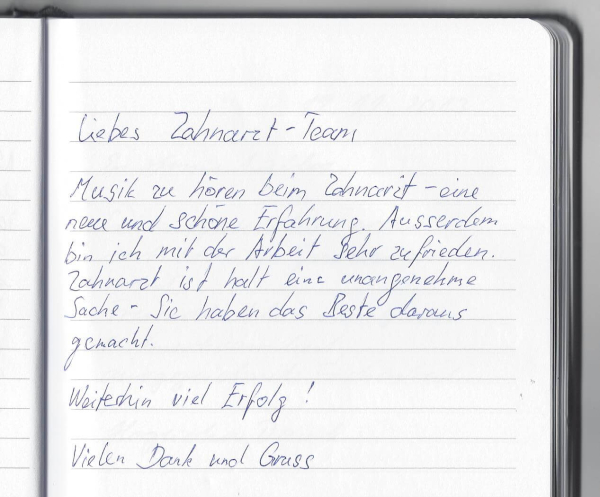 Liebes Zahnarzt-Team
Musik zu hören beim Zahnarzt - eine
neue und schöne Erfahrung. Ausserdem
bin ich mit der Arbeit sehr zufrieden.
Zahnarzt ist halt eine unangenehme
Sache - Sie haben das Beste daraus
gemacht.
Weiterhin viel Erfolg!
Vielen Dank und Gruss